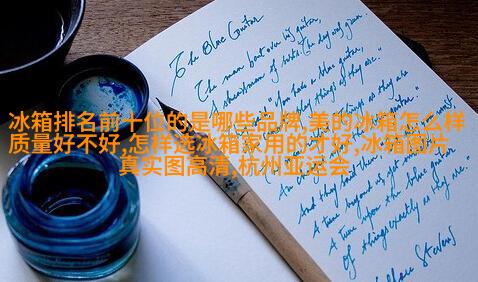 The Blue Guitar
The man bent over his guitar,
A shearsman of sorts. The day was green.
"You have a blue guitar,
things as they are."
as they are
冰箱排名前十位的是哪些品牌,美的冰箱怎么样
质量好不好,怎样选冰箱家用的才好,冰箱图片
真实图高清,杭州亚运会
And they said
A tune beyond us, yet
A tune upon the blue guitar
Of things exactly as they are."
Wallace Stevens